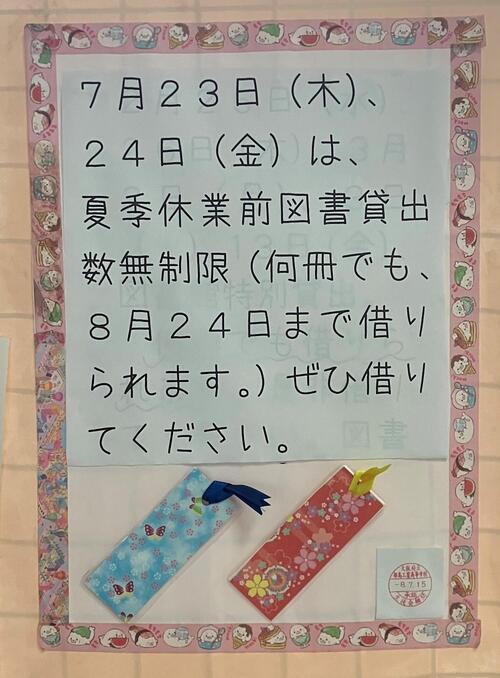 7月23日（木）、
24日（金）は、
夏季休業前図書貸出
数無制限（何冊でも、
8月24日まで借り
られます。）ぜひ借り
てください。
図書
-8.7.15